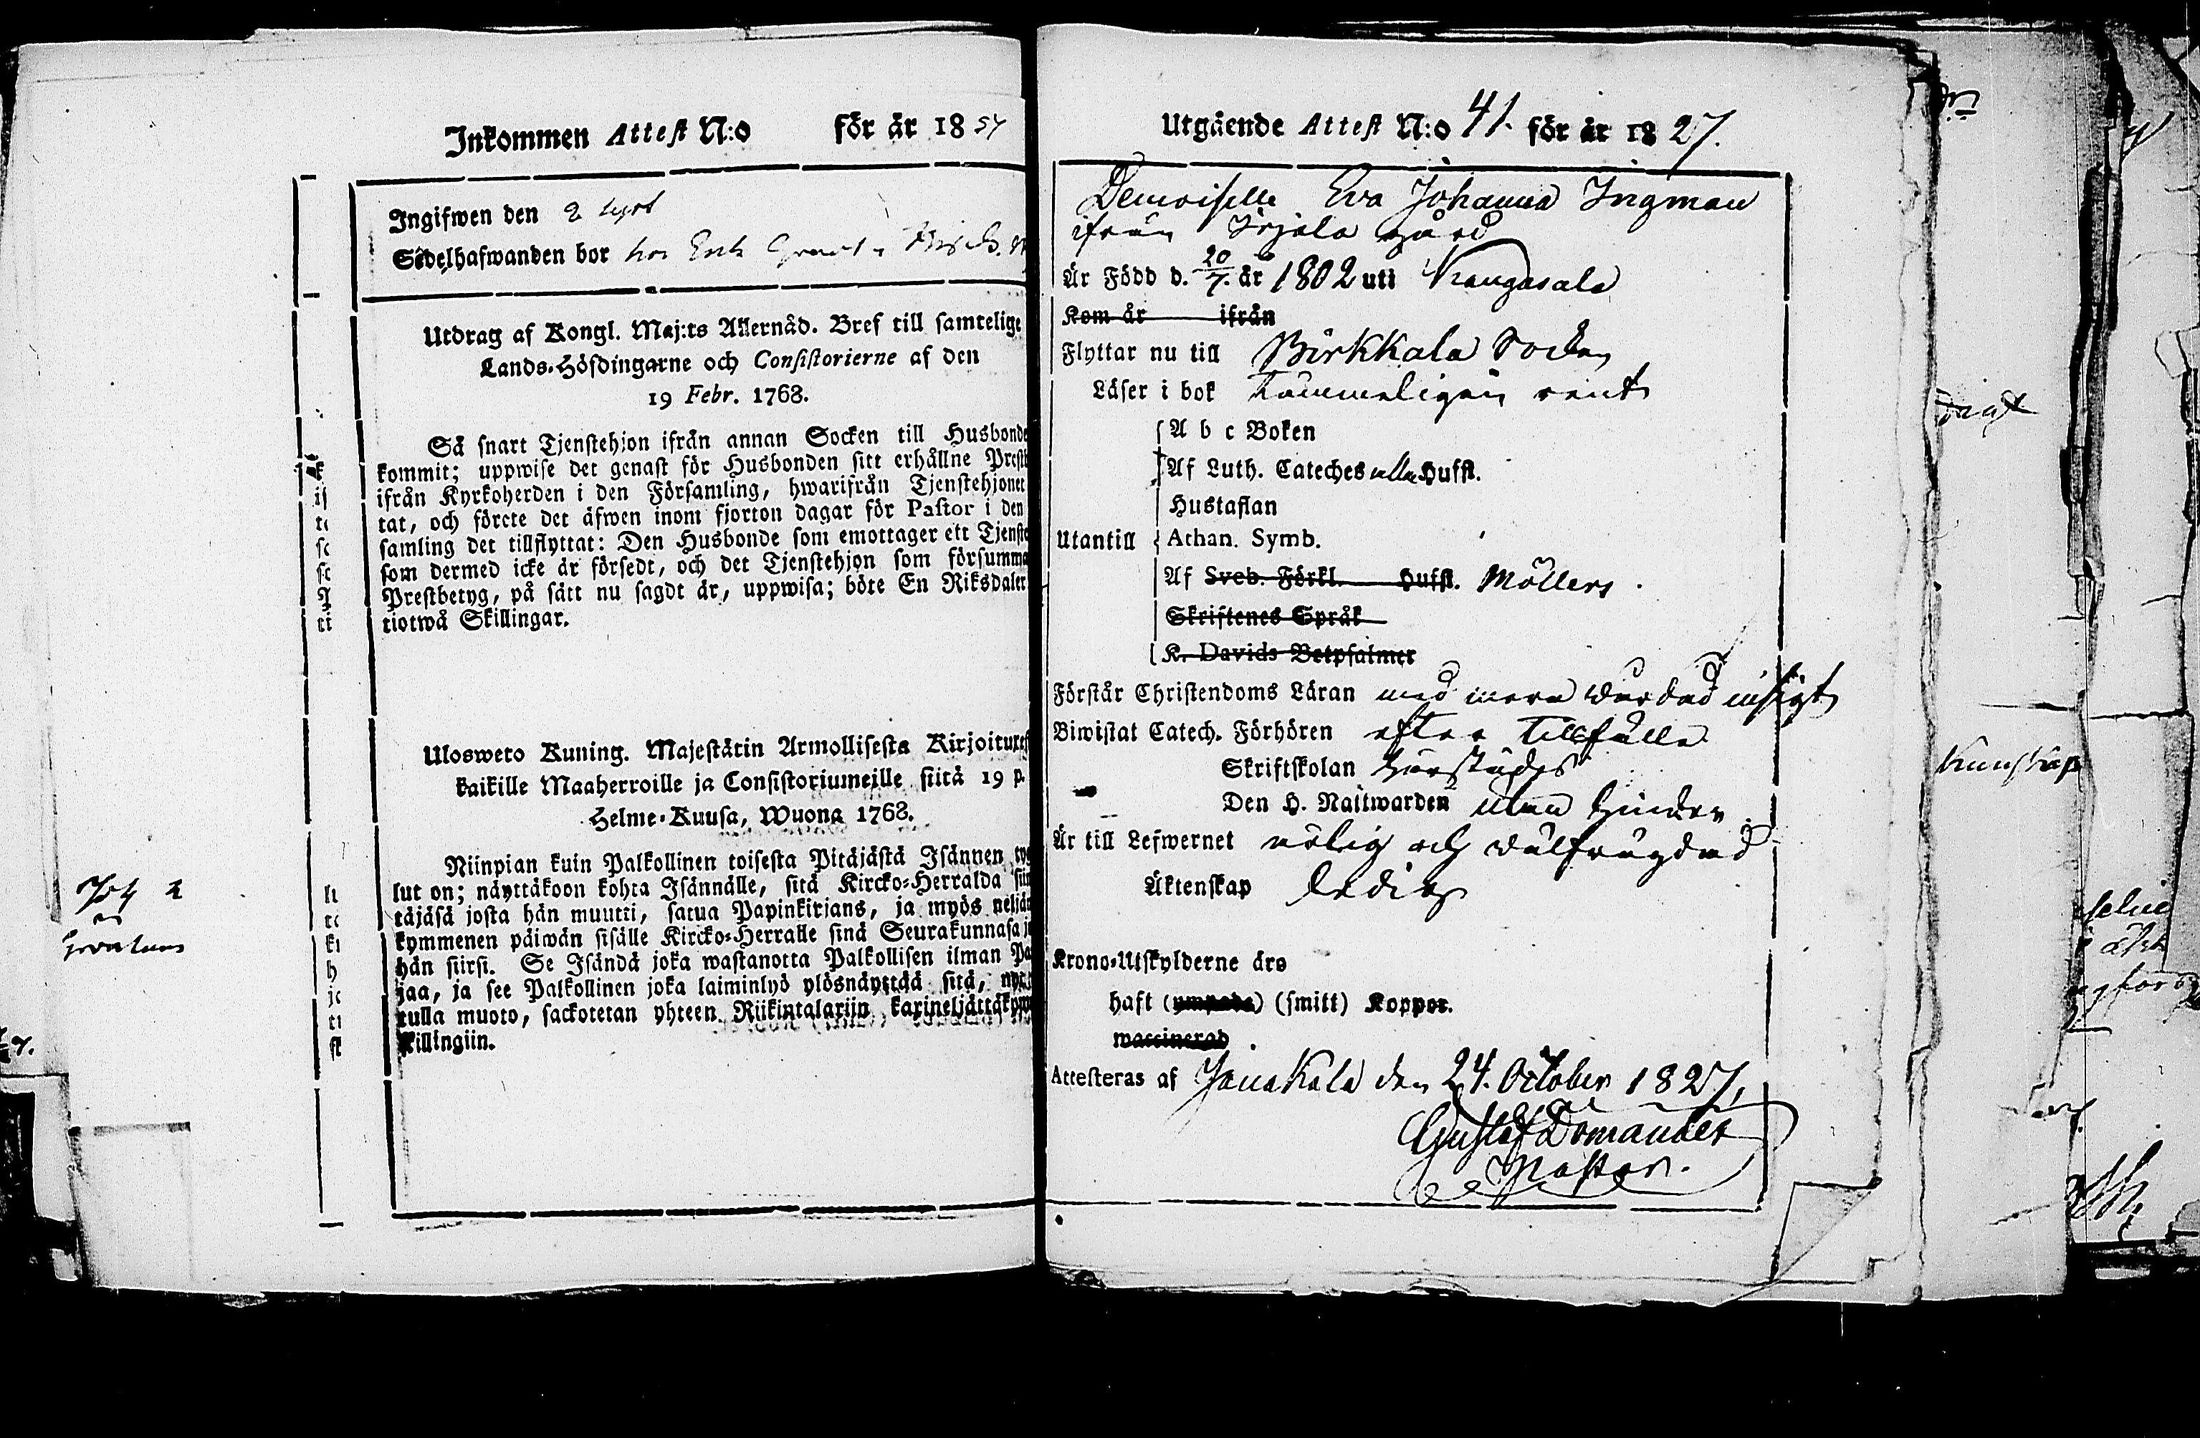 Inkommen Attest N:o för år 18 54
Ingifwen den 2 Sept
Sedelhafwanden bor hos
Utdrag af Kongl. Maj:ts Allernåd. Bref till samtelige
Lands-Höfdingarne och Consistorierne af den
19 Febr. 1768.
Så snart Tjenstehjon ifrån annan Socken till Husbonde
kommit; uppwise det genast för Husbonden sitt erhållne Prestb
ifrån Kyrkoherden i den Församling, hwarifrån Tjenstehjonet
tat, och förete det äfwen inom fjorton dagar för Pastor i den
samling det tillflyttat: Den Husbonde som emottager ett Tjenste
som dermed icke är försedt, och det Tjenstehjon som försumma
Prestbetyg, på sätt nu sagdt är, uppwisa; böte En Riksdaler
tiotwå Skillingar.
Ulosweto Kuning. Majestätin Armollisesta Kirjoituxes
kaikille Maaherroille ja Consistoriumeille siitä 19 p.
Helme-Kuusa, Wuona 1768.
Niinpian kuin Palkollinen toisesta Pitäjästä Isännen tyg
lut on; näyttäkoon kohta Isännälle, sitä Kircko-Herralda siin
täjäsä josta hän muutti, satua Papinkirjans, ja myös neljän
kymmenen päiwän sisälle Kircko-Herralle sinä Seurakunnasa j
hän siirsi. Se Isändä joka wastanotta Palkollisen ilman Pa
jaa, ja see Palkollinen joka laiminlyö ylösnäyttää sitä, nyt
tulla muoto, sackotetan yhteen Riikintalariin kaxineljättäkym
killingiin.
Utgående Attest N:o 41. för år 18 27.
Demoiselle Eva Johanna Ingman
ifrån Irjala gård
Är Född d. 20/7. år 1802 uti Kangasala
Kom år ifrån
Flyttar nu till Birkkala Socken
Läser i bok tämmeligen rent
A b c Boken
Af Luth. Cateches alla Hufst.
Hustaflan
Utantill Athan. Symb.
Af Sveb. Förkl. Hufst. Möllers
Skriftenes Språk
K. Davids Betpsalmer
Förstår Christendoms Läran med mera insigt
Biwistat Catech. Förhören efter tillfälle
Skriftskolan härstädes
Den H. Nattwarden utan hinder
Är till Lefwernet ärlig och wälfrägdad
Äktenskap ledig
Krono-Utskylderne äro
haft (ympade) (smitt) Koppor.
waccinerad
Attesteras af Janakkala den 24. October 1827,
Gustaf Domander
Pastor.